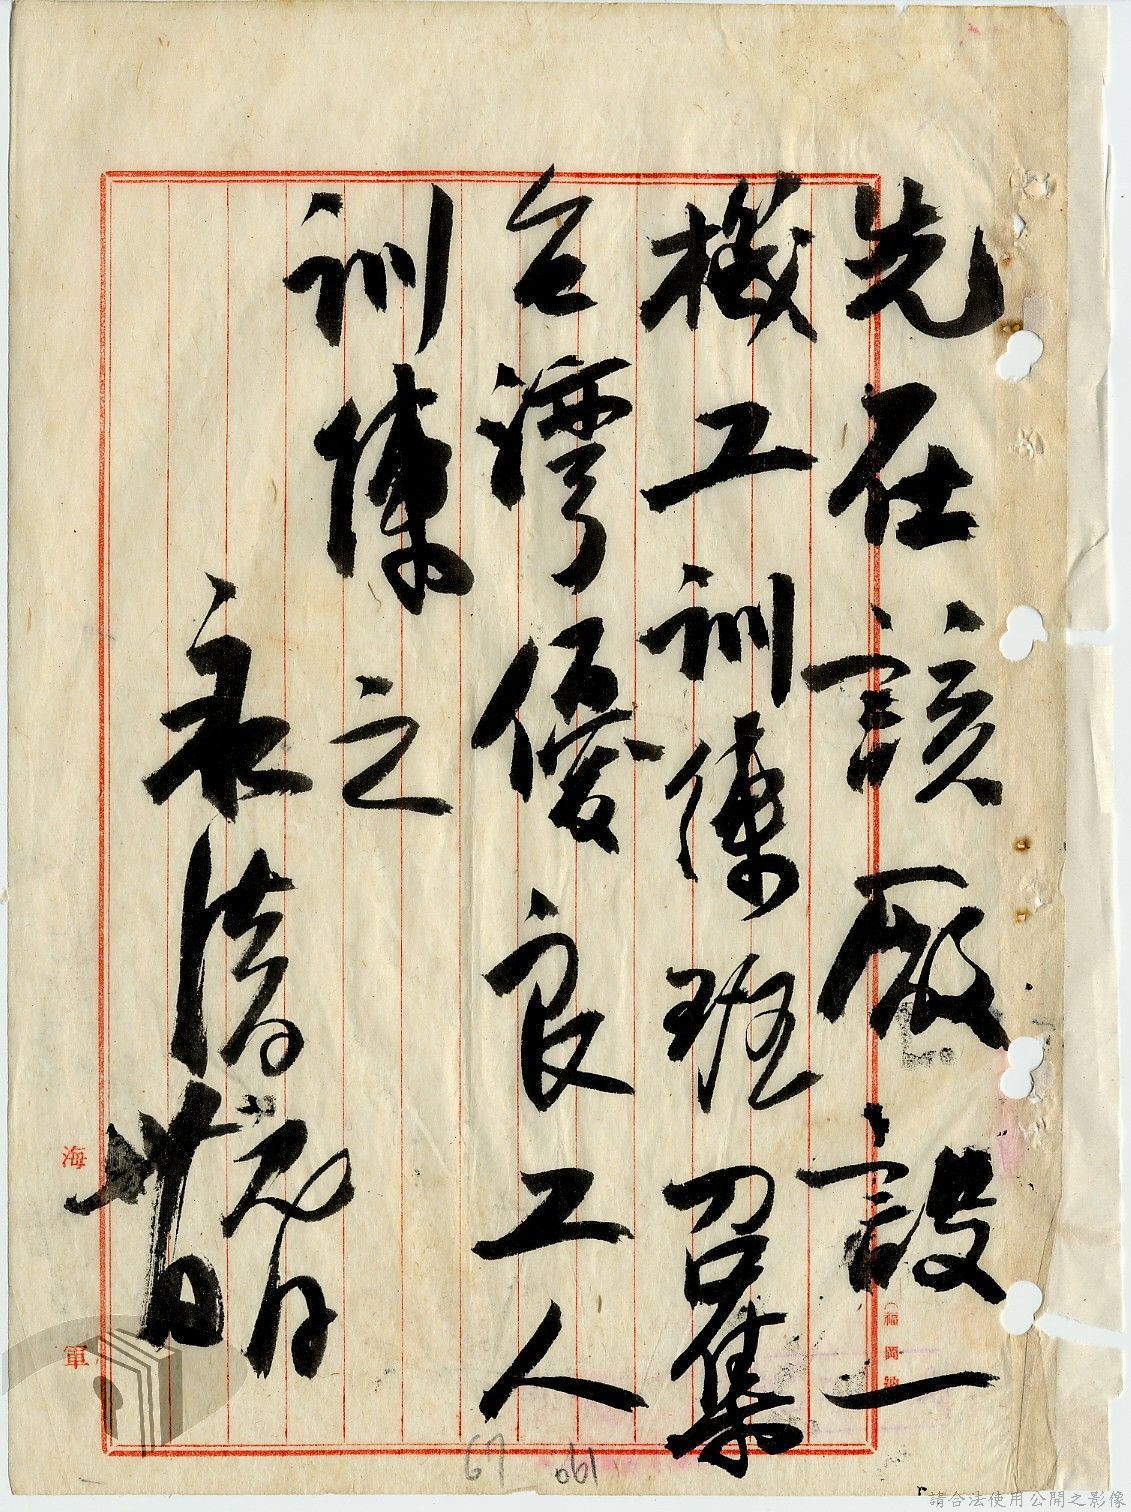 先在該廠設一
機工訓練班召集
台灣優良工人
訓練之
永清
元月
廿日
海軍
67
061
請合法使用公開之影像